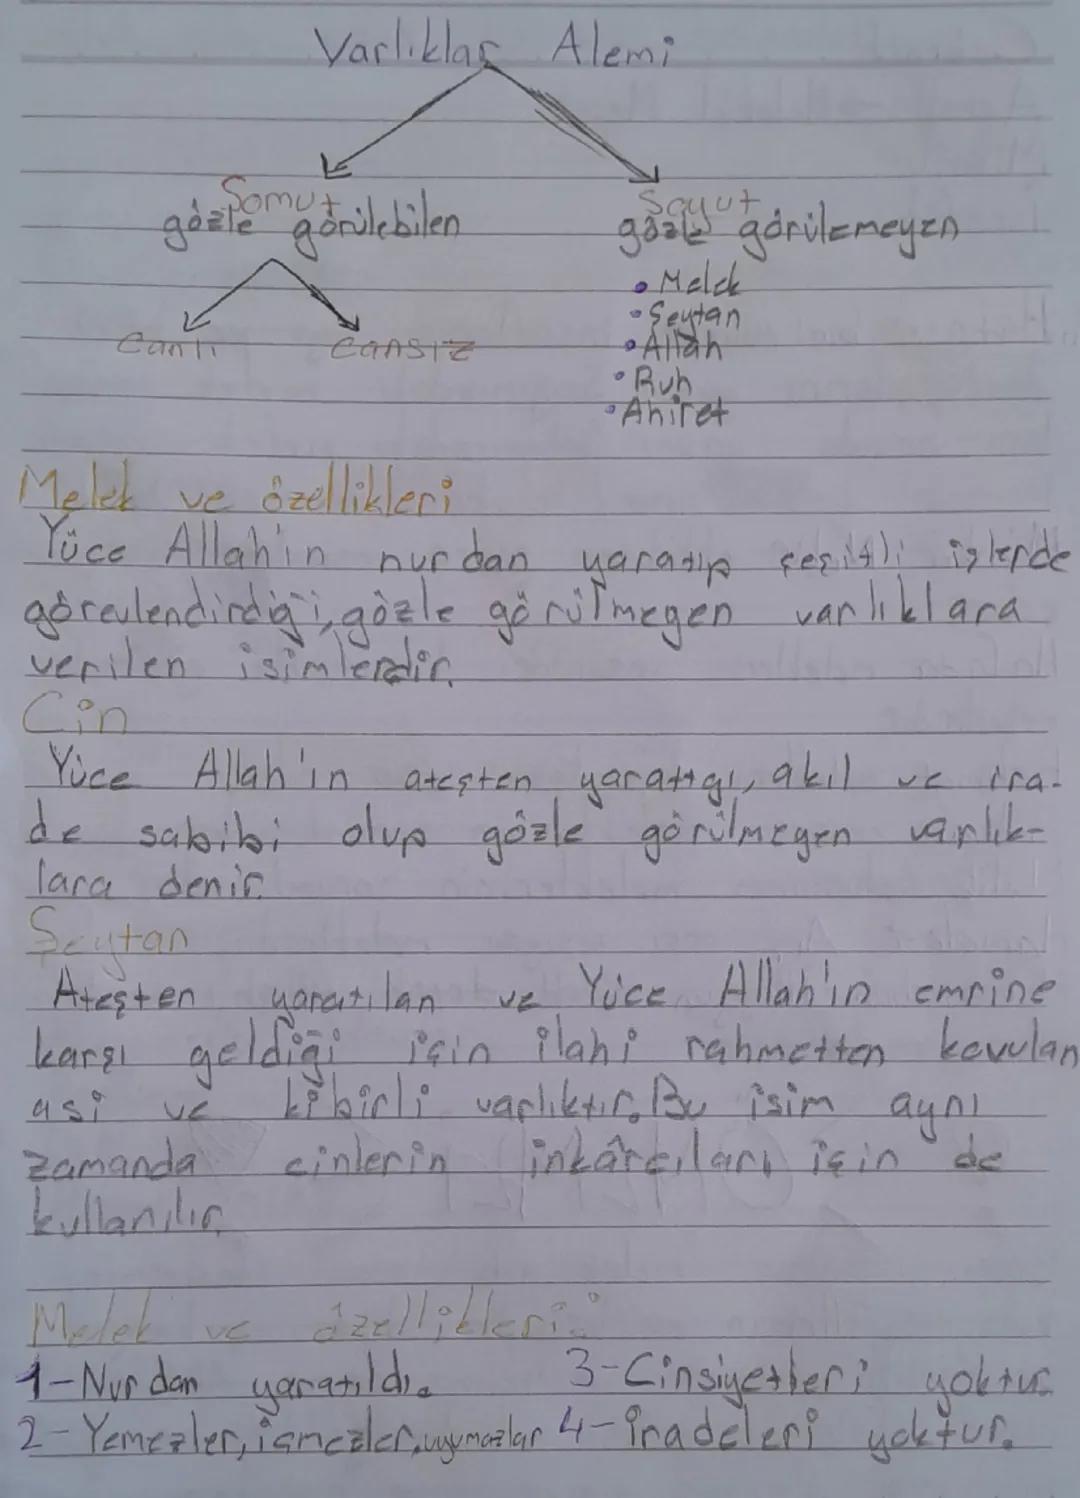 Varlıklar Alemi
Somut
gözle görülebilen
Soyut
gözle görülemeyen
Canlı
Cansız
• Melek
• Şeytan
• Allah
• Ruh
• Ahiret
Melek ve özellikleri
Yüce Allah'ın nurdan yaratıp çeşitli işlerde
görevlendirdiği, gözle görülmeyen varlıklara
verilen isimlerdir.
Cin
Yüce Allah'ın ateşten yarattığı, akıl ve ira-
de sahibi olup gözle görülmeyen varlık-
lara denir.
Şeytan
Ateşten yaratılan ve Yüce Allah'ın emrine
karşı geldiği için ilahi rahmetten kovulan
asi ve kibirli varlıktır. Bu isim aynı
zamanda cinlerin inkârcıları için de
kullanılır.
Melek ve özellikleri:
1-Nurdan yaratıldı. 3-Cinsiyetleri yoktur.
2-Yemezler, içmezler, uyumazlar 4-İradeleri yoktur.